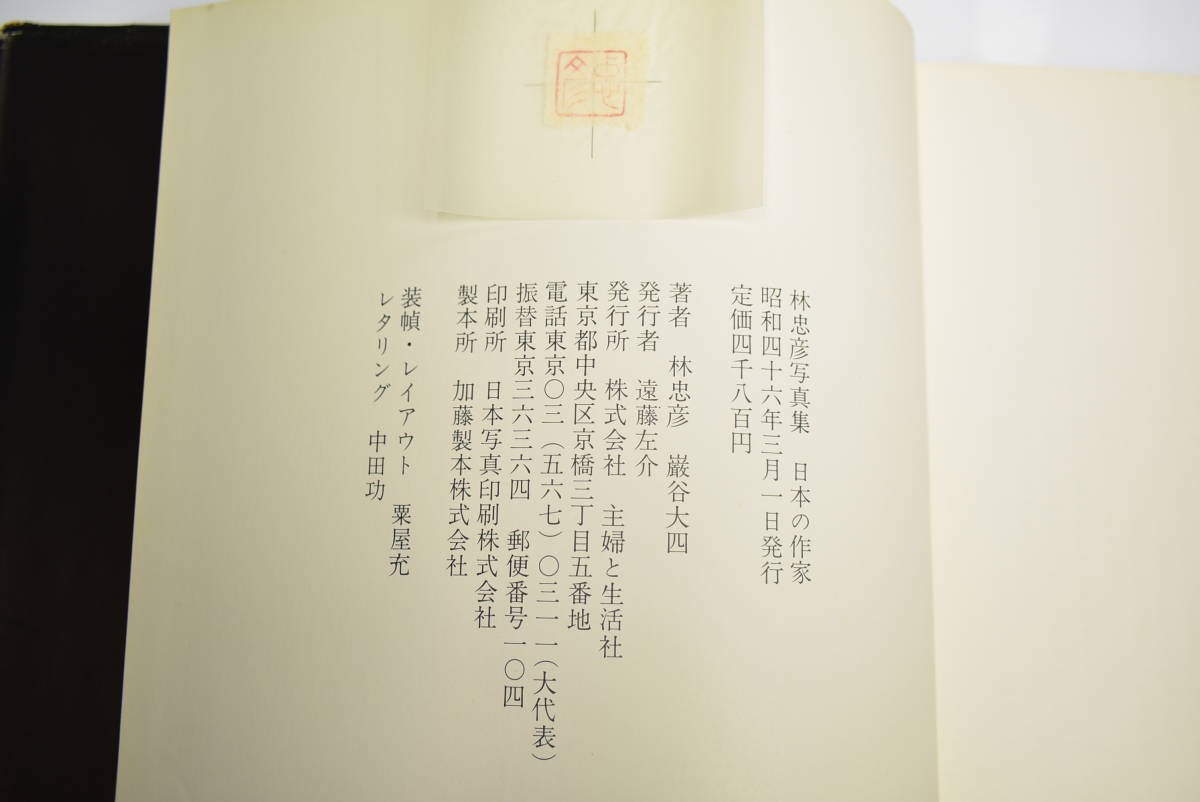 忠彦
林忠彦写真集 日本の作家
昭和四十六年三月一日発行
定価四千八百円
著者 林忠彦 巌谷大四
発行者 遠藤左介
発行所 株式会社 主婦と生活社
東京都中央区京橋三丁目五番地
電話東京〇三(五六七)〇三一一(大代表)
振替東京三六三六四 郵便番号一〇四
印刷所 日本写真印刷株式会社
製本所 加藤製本株式会社
装幀・レイアウト 粟屋充
レタリング 中田功